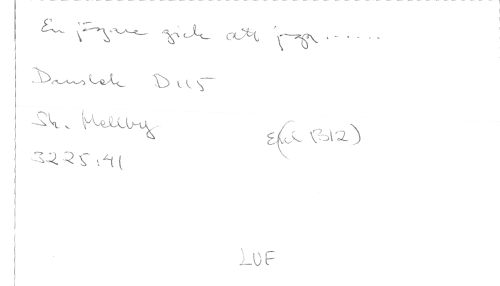 En jägare gick att jaga.......
Danslek D115
Sk. Mellby
(Enl B12)
3225:41
LUF